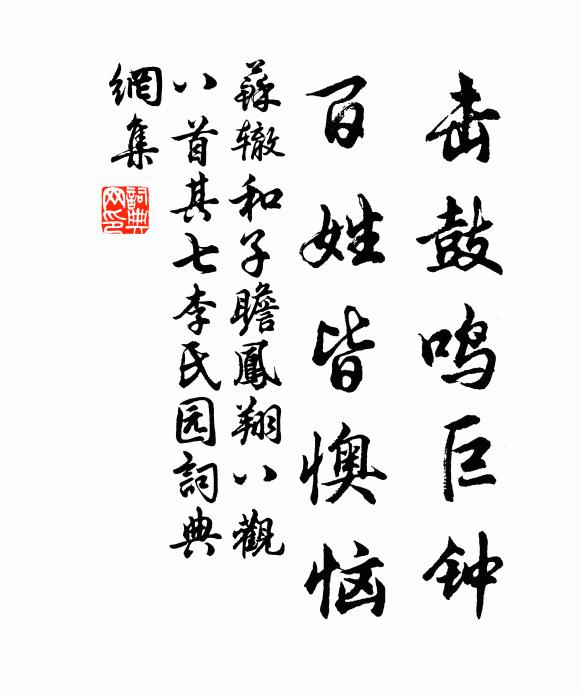 击鼓鸣巨钟
百姓皆懊恼
蘇辙和子瞻鳳翔八觀
八首其七李氏园詞典
網集
詞典网印